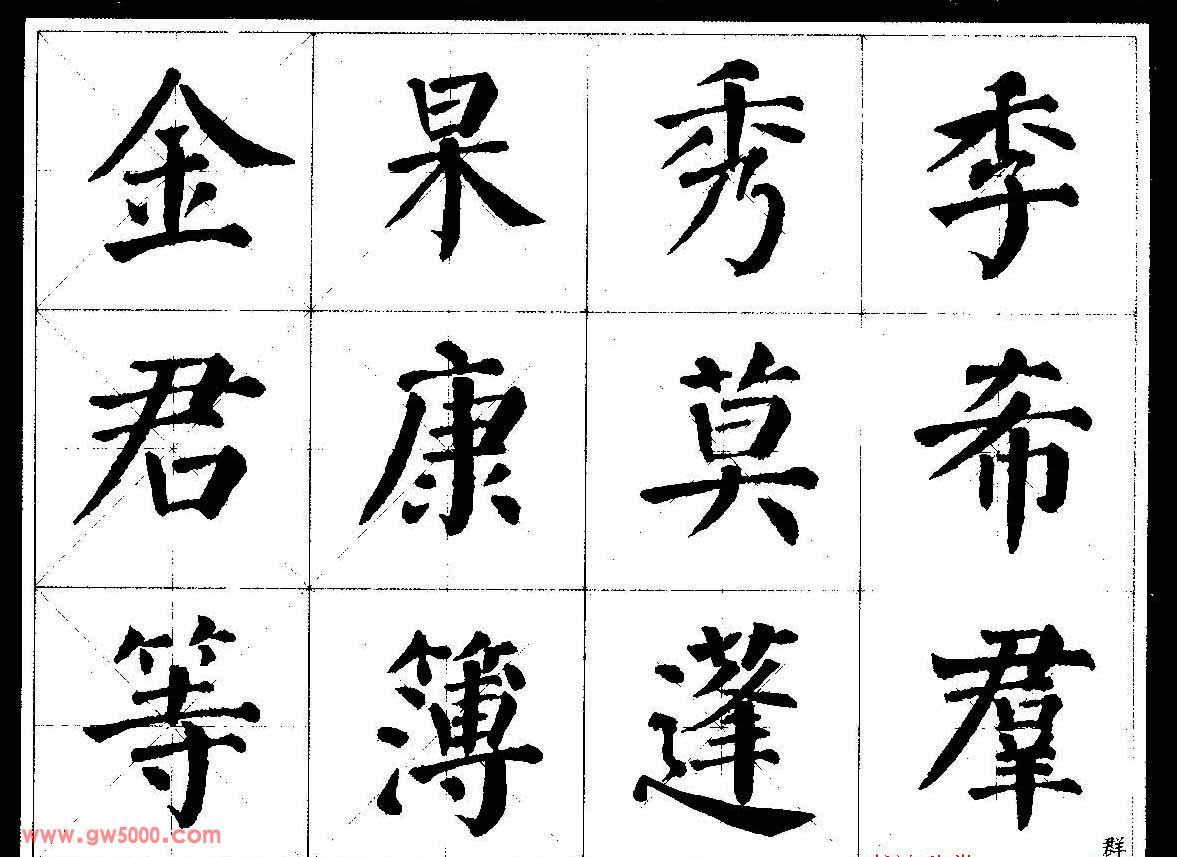 金杲秀季
君康莫希
等簿蓬羣
群
www.gw5000.com